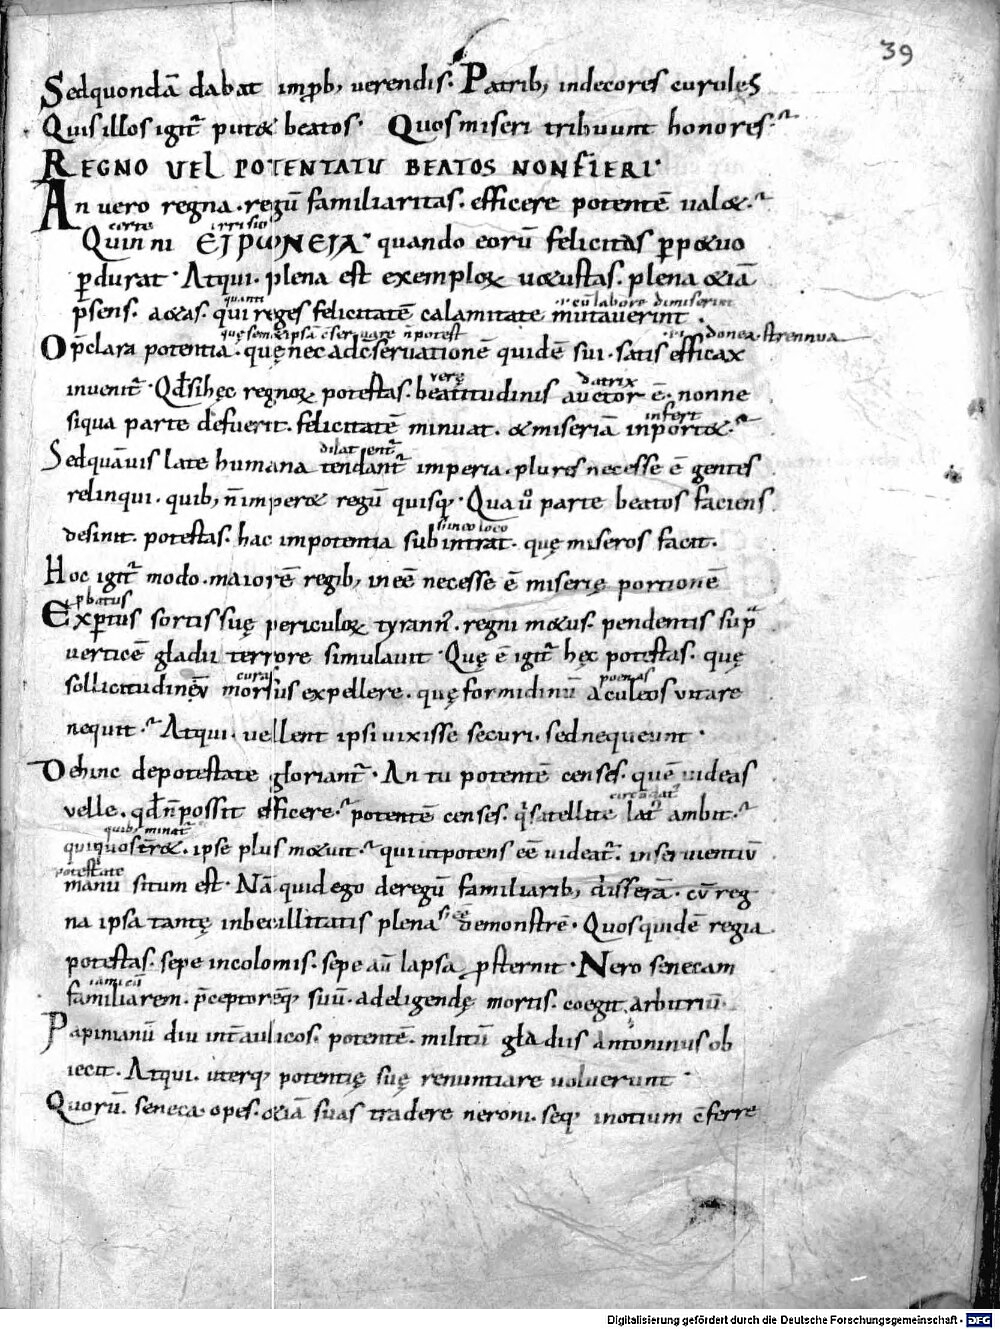 39
Sedquondā dabat improb, verendis. Patrib, indecores curules
Quis illos igit putet beatos. Quos miseri tribuunt honores.
REGNO VEL POTENTATU BEATOS NON FIERI.
An uero regna. regū familiaritas. efficere potentē ualet.
certe irrisio
Quin ni ΕΙΡΩΝΕΙΑ. quando eorū felicitas ꝑpetuo
ꝑdurat. Atqui. plena est exemploꝝ uetustas. plena etiā
quanti cū labore dimiserint
p̄sens. aetas. qui reges felicitatē calamitate mutauerint.
quę semetipsā cseruare n̄ potest idonea. strennua
O p̄clara potentia. quę nec ad cseruationē quidē sui. satis efficax
verę datrix
inuenit. Qd̄ si hęc regnoꝝ potestas. beatitudinis auctor ē. nonne
infert
siqua parte defuerit. felicitatē minuat. et miseriā inportet.
dilatent
Sed quāuis late humana tendant imperia. plures necesse ē gentes
relinqui. quib, n̄ imperet regū quisq. Qua ů parte beatos faciens
sine loco
desinit. potestas. hac impotentia sub intrat. quę miseros facit.
Hoc igit modo. maiorē regib, inēe necesse ē miserię portionē
ꝓbatus
Exꝑtus sortis suę periculoꝝ tyrann. regni metus. pendentis supra
verticē gladii terrore simulauit. Quę ē igit hęc potestas. quę
curas poenas
sollicitudinū morsus expellere. quę formidinū aculeos vitare
nequit. Atqui. uellent ipsi vixisse securi. sed nequeunt.
Dehinc de potestate gloriant. An tu potentē censes. quē uideas
circūdat
velle. qd̄ n̄ possit efficere. potentē censes. qi satellite lat ambit.
quib, minat
qui quos terret. ipse plus metuit. qui ut potens ēe uideat. in seruientiū
potestate
manu situm est. Nā quid ego de regū familiarib, disserā. cū reg
na ipsa tantę inbecillitatis plena demonstrē. Quos quidē regia
potestas. sepe incolomis. sepe aū lapsa ꝓsternit. Nero senecam
amicū
familiarem. p̄ceptorēq suū. ad eligendę mortis. coegit arbitriū.
Papinianū diu int aulicos. potentē. militū gladiis antoninus ob
iecit. Atqui. uterq potentię suę renuntiare uoluerunt.
Quorū. seneca. opes. etiā suas tradere neroni. seq in otium cferre
Digitalisierung gefördert durch die Deutsche Forschungsgemeinschaft - DFG